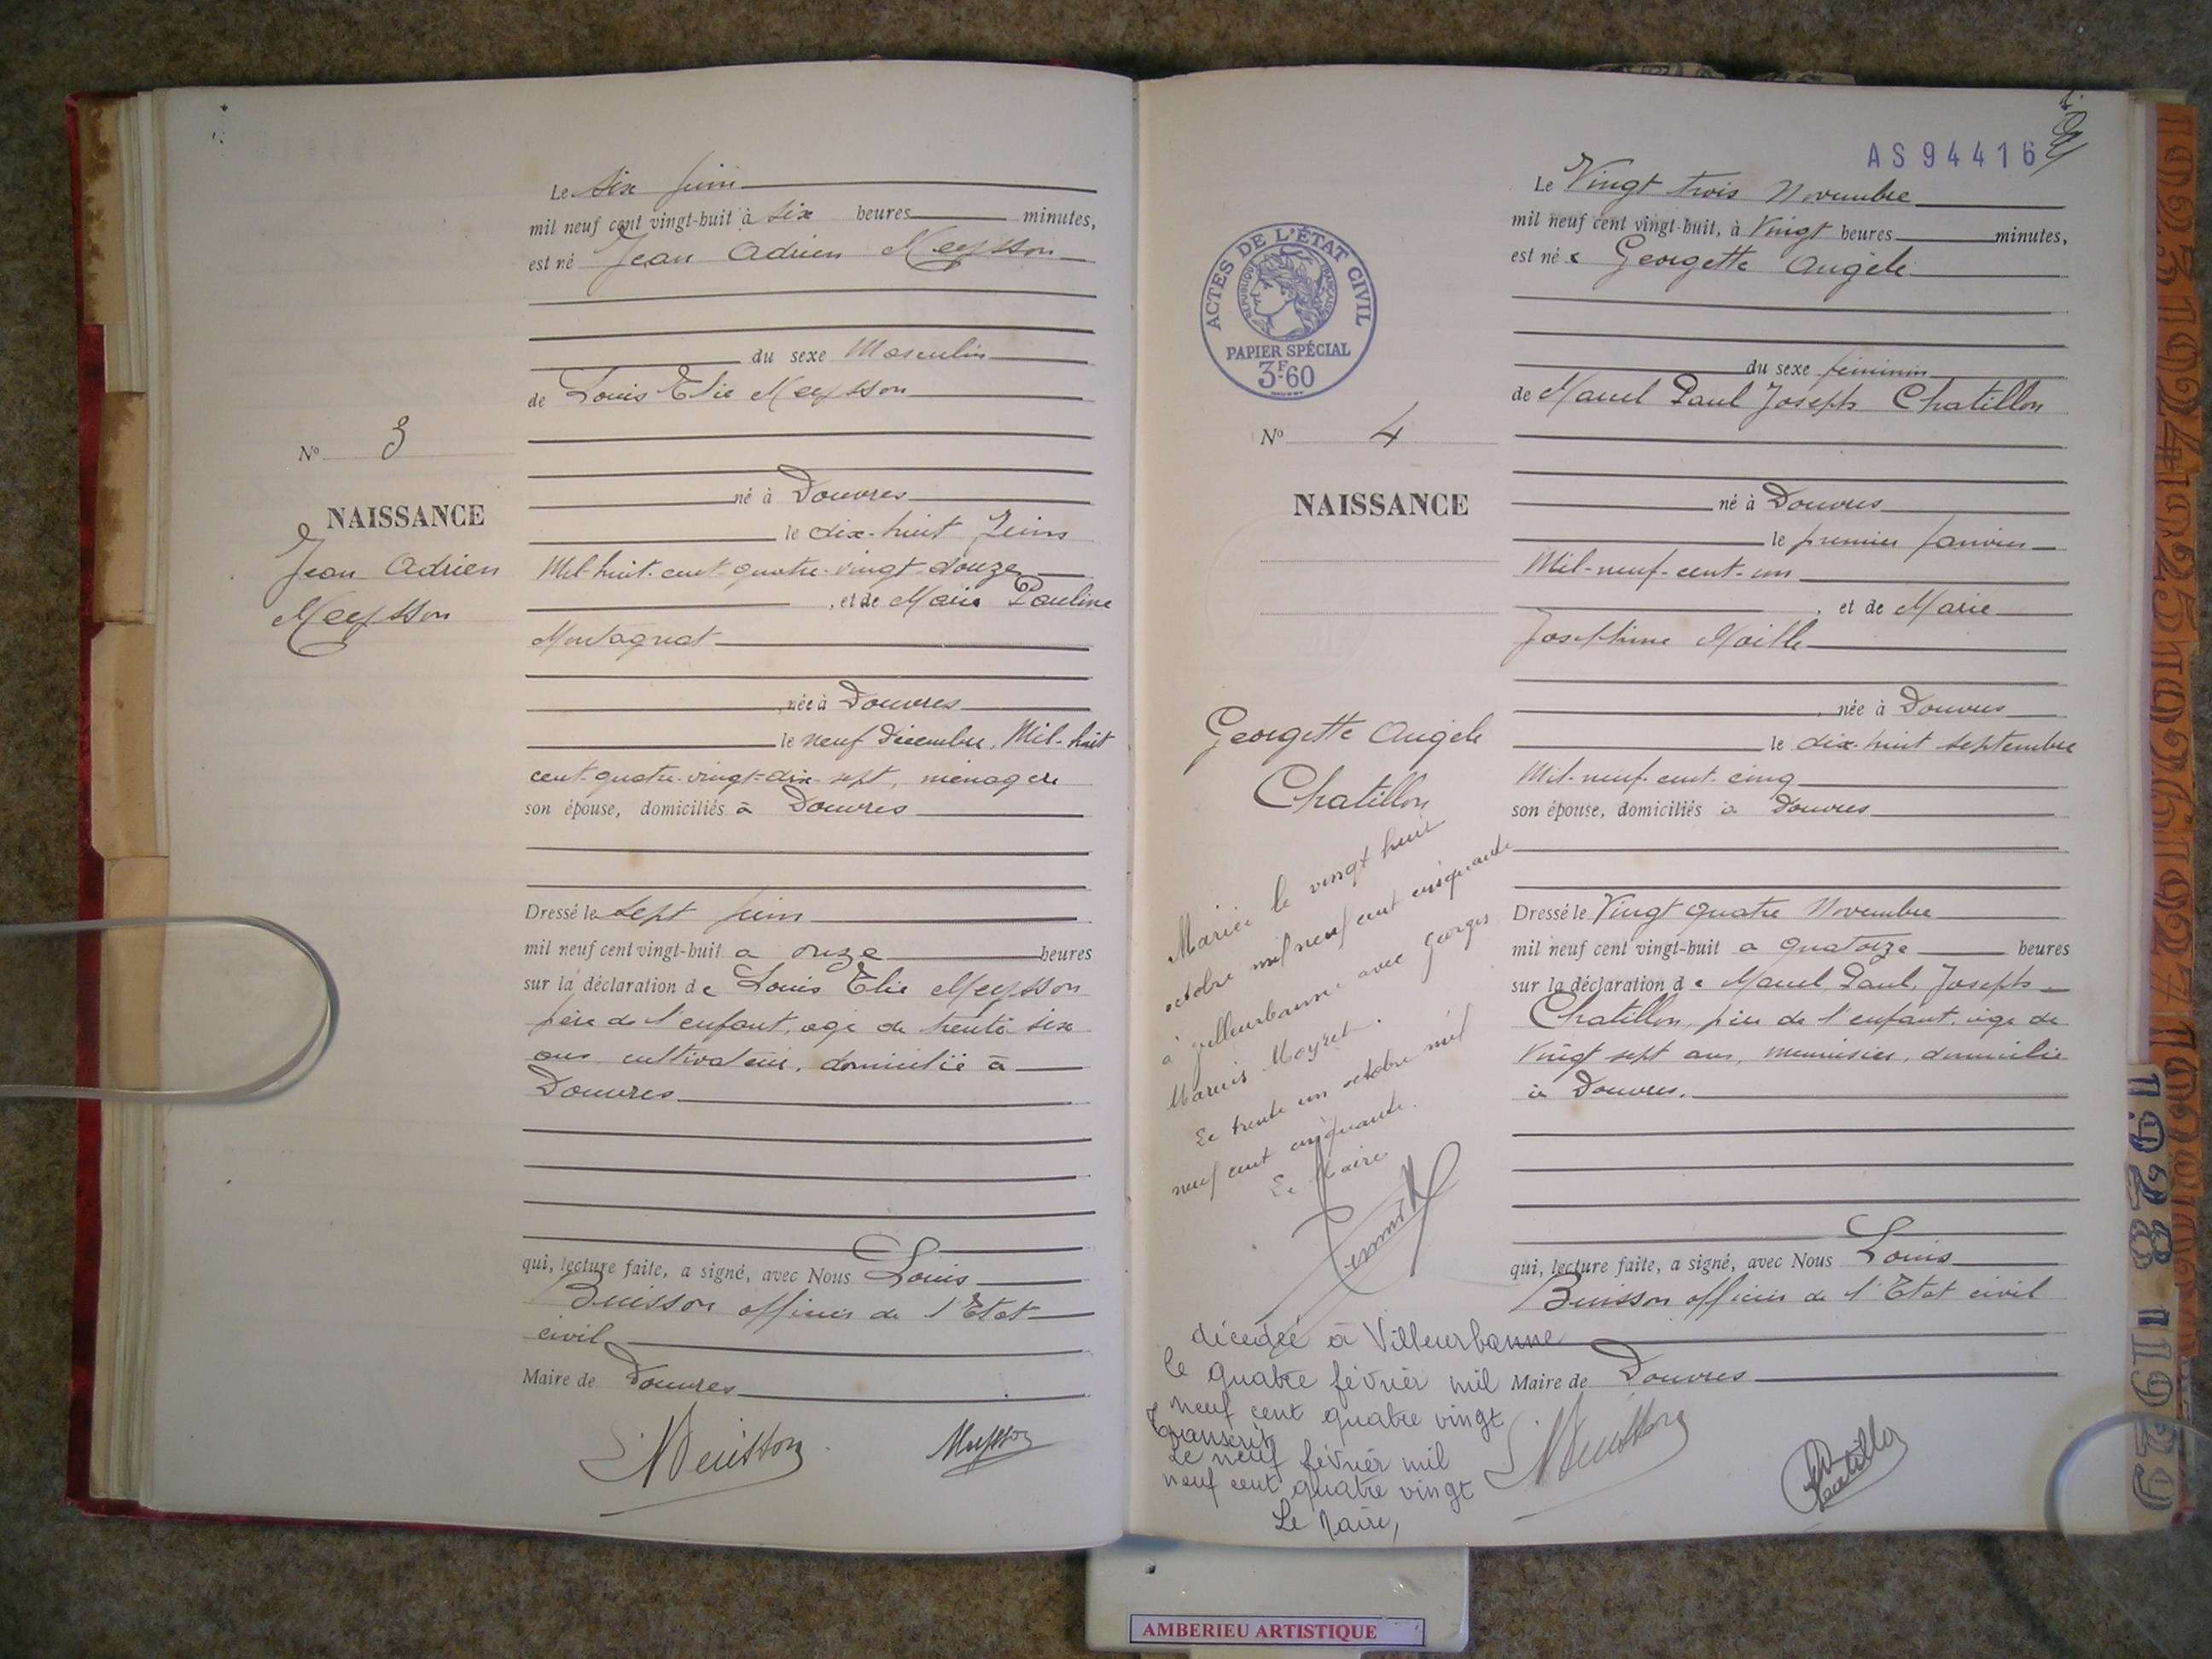 Le six juin
mil neuf cent vingt-huit à six heures minutes,
est né Jean Adrien Meysson
du sexe Masculin
de Louis Elie Meysson
N° 3
né à Douvres
NAISSANCE
le dix-huit Juin
Jean Adrien
Mil-huit-cent-quatre-vingt-douze
, et de Marie Pauline
Meysson
Montagnat
née à Douvres
le neuf Décembre, Mil-huit
cent-quatre-vingt-dix-sept, ménagère
son épouse, domiciliés à Douvres
Dressé le sept juin
mil neuf cent vingt-huit à onze heures
sur la déclaration de Louis Elie Meysson
père de l'enfant, agé de trente six
ans cultivateur, domicilié à
Douvres
qui, lecture faite, a signé, avec Nous Louis
Buisson officier de l'Etat
civil
Maire de Douvres
Buisson
Meysson
AS94416
Le Vingt trois Novembre
mil neuf cent vingt-huit, à Vingt heures minutes,
est née Georgette Angèle
ACTES DE L'ÉTAT CIVIL
RÉPUBLIQUE FRANÇAISE
PAPIER SPÉCIAL
3F60
du sexe féminin
de Marcel Paul Joseph Chatillon
N° 4
né à Douvres
NAISSANCE
le premier Janvier
Mil-neuf-cent-un
, et de Marie
Joséphine Maille
née à Douvres
Georgette Angèle
le dix-huit septembre
Mil-neuf-cent-cinq
Chatillon
son épouse, domiciliés à Douvres
Mariée le vingt huit
octobre mil neuf cent cinquante
à Villeurbanne avec Georges
Marius Moyret.
Le trente un octobre mil
neuf cent cinquante.
Le Maire
Dressé le Vingt quatre Novembre
mil neuf cent vingt-huit à quatorze heures
sur la déclaration de Marcel, Paul, Joseph
Chatillon, père de l'enfant, âgé de
Vingt sept ans, menuisier, domicilié
à Douvres.
qui, lecture faite, a signé, avec Nous Louis
Buisson officier de l'Etat civil
Maire de Douvres
décédée à Villeurbanne
le quatre février mil
neuf cent quatre vingt
Transcrit
Le neuf février mil
neuf cent quatre vingt
Le Maire,
Buisson
Chatillon
1923 1924 1925 1926 1927
1928 1929
AMBERIEU ARTISTIQUE